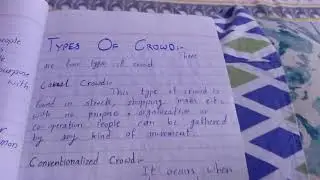 people
purpose
with
mon
TYPES OF CROWD:-
There
are four type of crowd
Casual Crowd:-
This type of crowd is
found in streets, shopping males etc
with no purpose & organization or
co-operation. People can be gathered
by any kind of movement.
Conventionalized Crowd:-
It occurs when